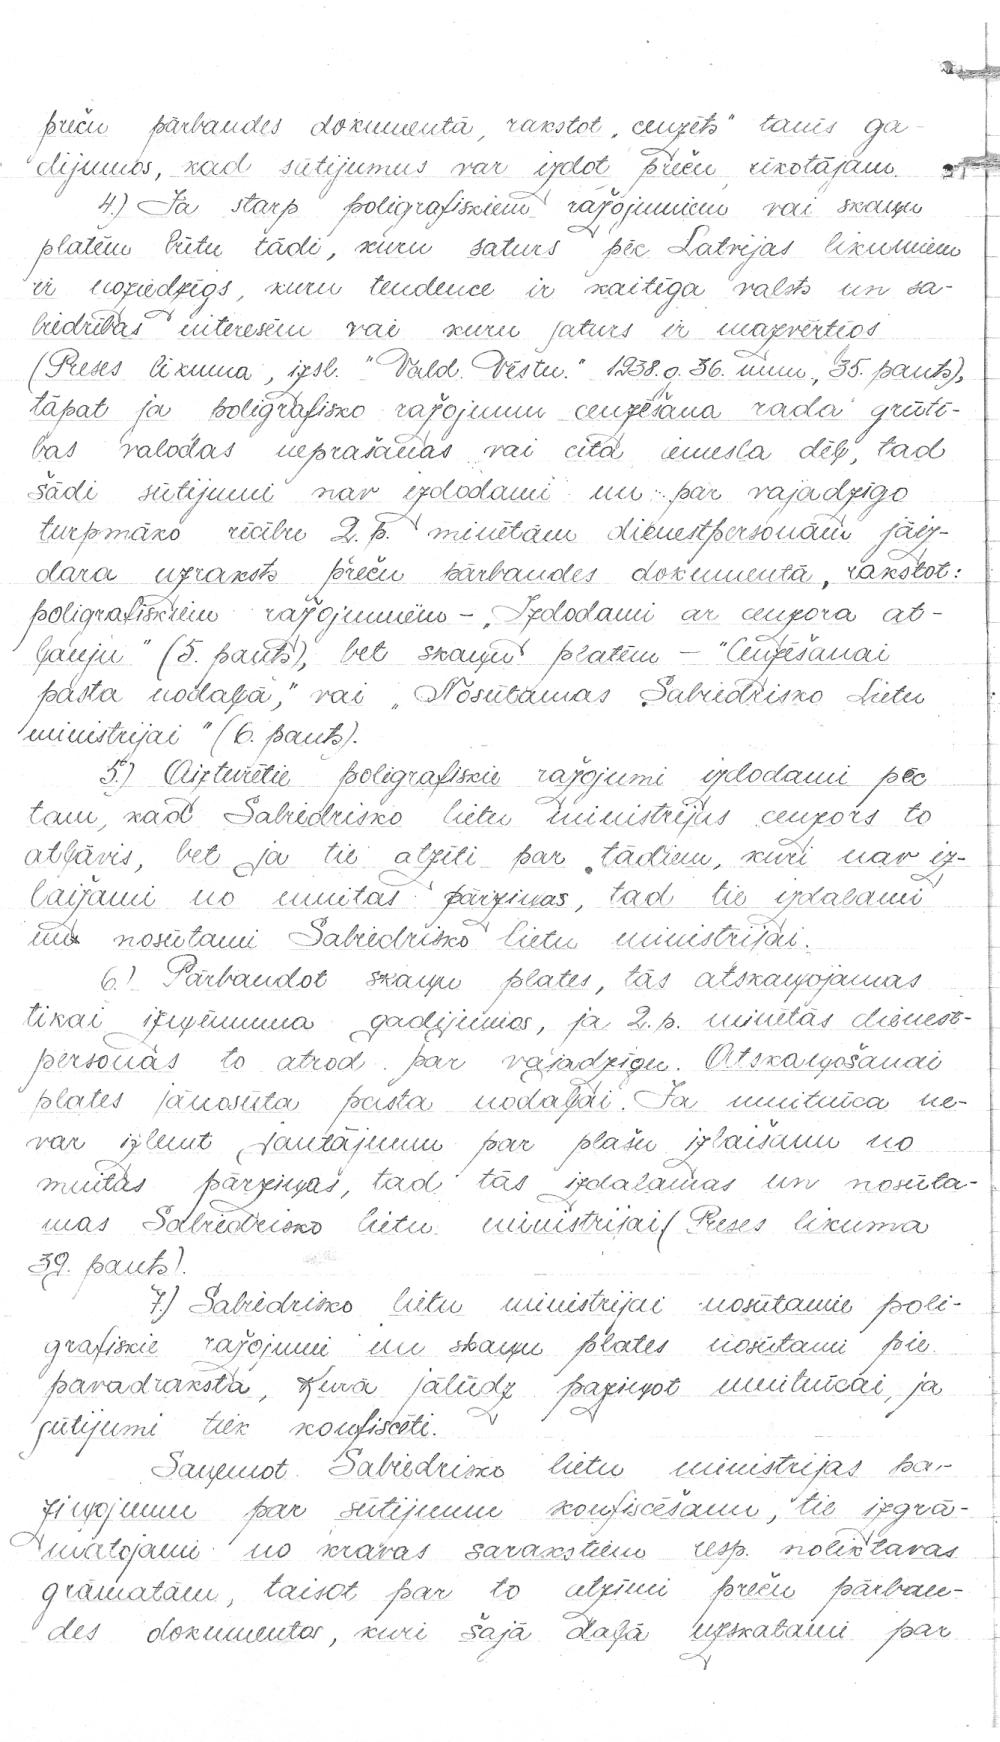 preču pārbaudes dokumentā, rakstot „cenzēts" tanīs ga-
dījumos, kad sūtījumus var izdot preču rīkotājam.
4.) Ja starp poligrafiskiem ražojumiem vai skaņu
platēm būtu tādi, kuru saturs pēc Latvijas likumiem
ir noziedzīgs, kuru tendence ir kaitīga valsts un sa-
biedrības interesēm vai kuru saturs ir mazvērtīgs
(Preses likuma, izsl. "Vald. Vēstn." 1938. g. 36. num., 35. pants),
tāpat ja poligrafisko ražojumu cenzēšana rada grūtī-
bas valodas neprašanas vai cita iemesla dēļ, tad
šādi sūtījumi nav izdodami un par vajadzīgo
turpmāko rīcību 2. p. minētām dienestpersonām jāiz-
dara uzraksts preču pārbaudes dokumentā, rakstot:
poligrafiskiem ražojumiem – „Izdodami ar cenzora at-
ļauju" (5. pants), bet skaņu platēm – "Cenzēšanai
pasta nodaļā," vai „Nosūtamas Sabiedrisko Lietu
ministrijai" (6. pants).
5.) Aizturētie poligrafiskie ražojumi izdodami pēc
tam, kad Sabiedrisko lietu ministrijas cenzors to
atļāvis, bet ja tie atzīti par tādiem, kuri nav iz-
laižami no muitas pārziņas, tad tie izdalami
un nosūtami Sabiedrisko lietu ministrijai.
6.) Pārbaudot skaņu plates, tās atskaņojamas
tikai izņēmuma gadījumos, ja 2. p. minētās dienest-
personas to atrod par vajadzīgu. Atskaņošanai
plates jānosūta pasta nodaļai. Ja muitnīca ne-
var izlemt jautājumu par plašu izlaišanu no
muitas pārziņas, tad tās izdalamas un nosūta-
mas Sabiedrisko lietu ministrijai (Preses likuma
39. pants).
7.) Sabiedrisko lietu ministrijai nosūtamie poli-
grafiskie ražojumi un skaņu plates nosūtami pie
pavadraksta, kurā jālūdz paziņot muitnīcai, ja
sūtījumi tiek konfiscēti.
Saņemot Sabiedrisko lietu ministrijas pa-
ziņojumu par sūtījumu konfiscēšanu, tie izgrā-
matojami no kravas sarakstiem resp. noliktavas
grāmatām, taisot par to atzīmi preču pārbau-
des dokumentos, kuri šajā daļā uzskatami par